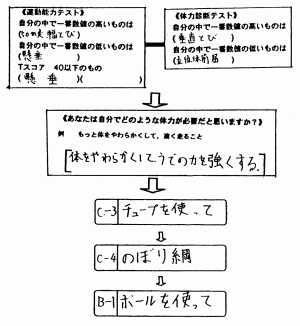 《運動能力テスト》
自分の中で一番数値の高いものは
自分の中で一番数値の低いものは
(懸垂)
Tスコア 40以下のもの
(懸垂)( )
《体力診断テスト》
自分の中で一番数値の高いものは
(垂直とび)
自分の中で一番数値の低いものは
(立位体前屈)
《あなたは自分でどのような体力が必要だと思いますか?》
例 もっと体をやわらかくして、速く走ること
[体をやわらかくしてうでの力を強くする。]
C-3 チューブを使って
C-4 のぼり綱
B-1 ボールを使って